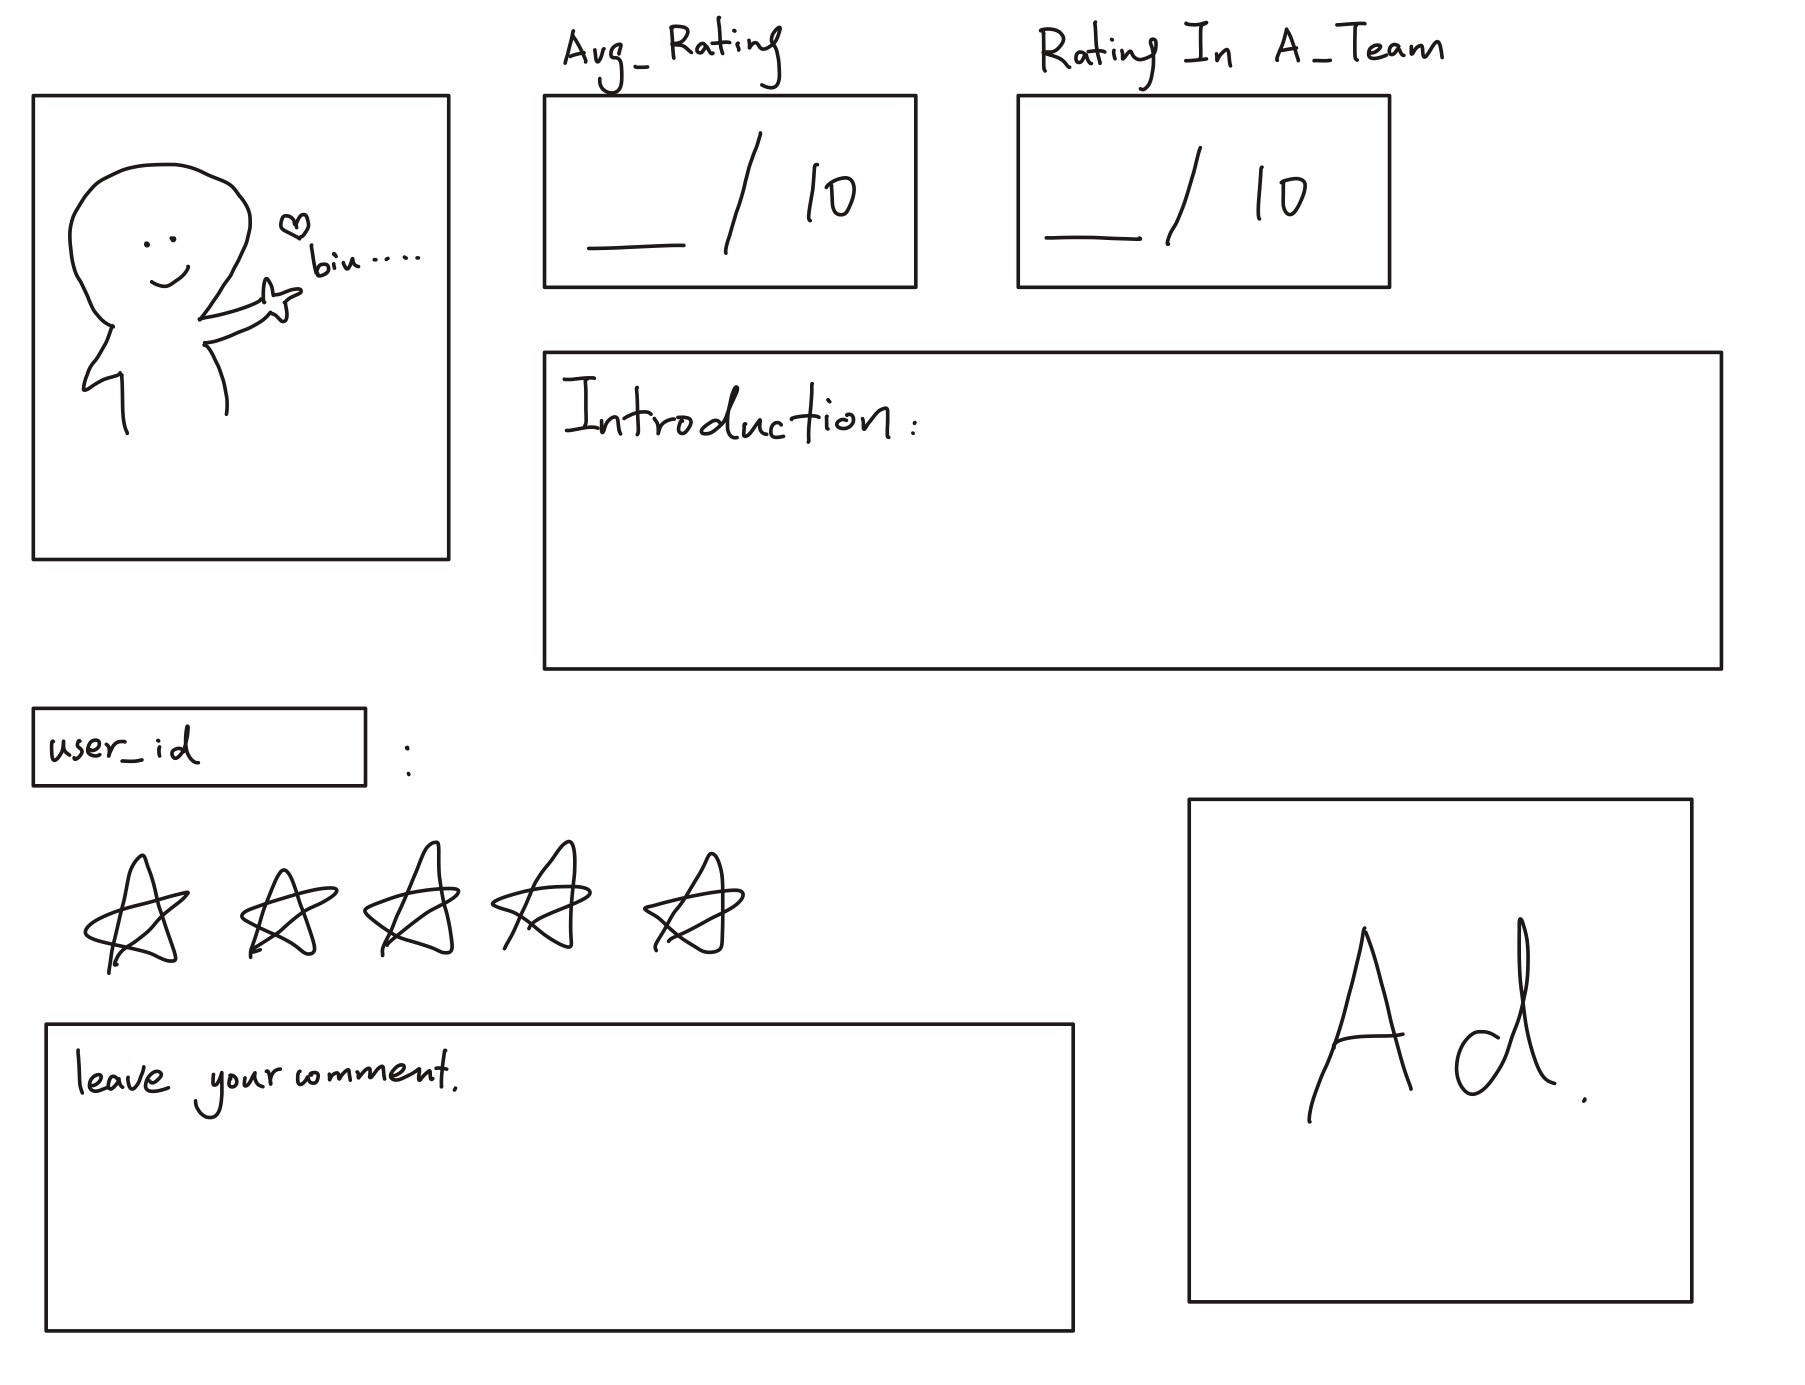 Avg_Rating
Rating In A_Team
__/10
__/10
biu.....
Introduction:
user_id :
leave your comment.
Ad.